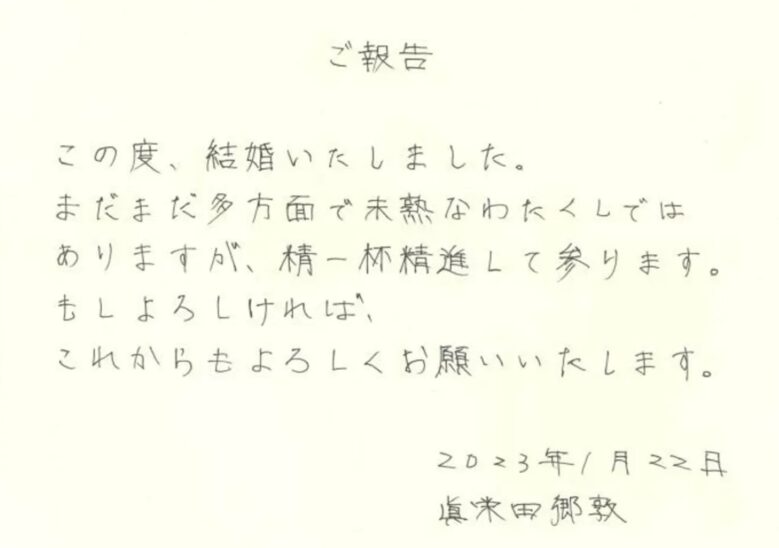 ご報告
この度、結婚いたしました。
まだまだ多方面で未熟なわたくしでは
ありますが、精一杯精進して参ります。
もしよろしければ、
これからもよろしくお願いいたします。
2023年1月22日
眞栄田郷敦